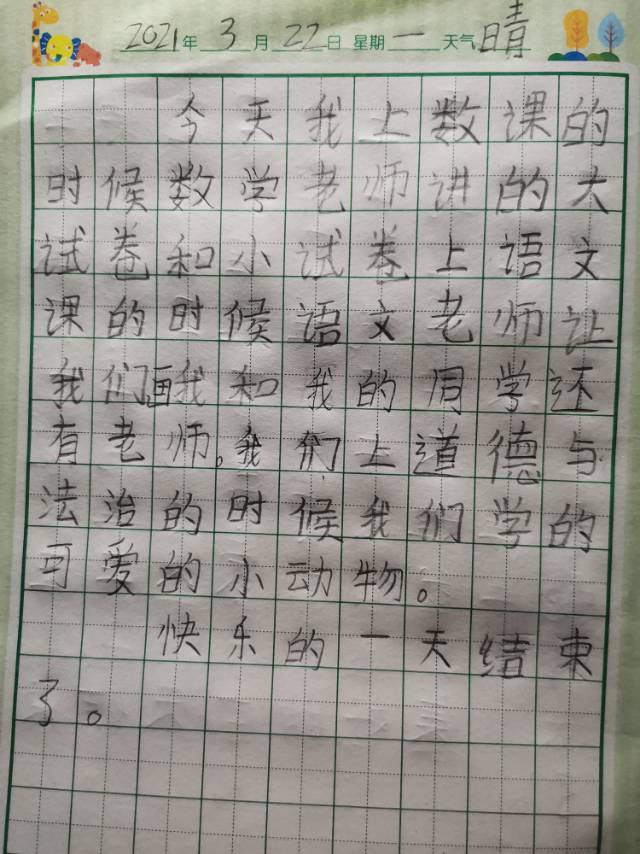 2021年3月22日 星期一 天气晴
今天我上数课的
时候数学老师讲的大
试卷和小试卷上语文
课的时候语文老师让
我们画我和我的同学还
有老师。我们上道德与
法治的时候我们学的
可爱的小动物。
快乐的一天结束
了。